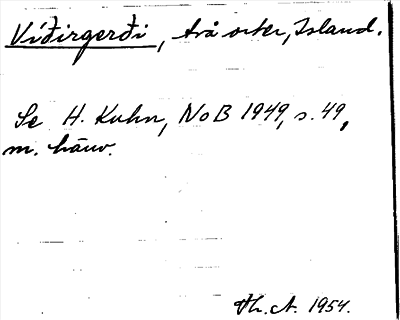 Víðirgerði, två orter, Island.
Se H. Kuhn, NoB 1949, s. 49,
m. hänv.
Th. A. 1954.